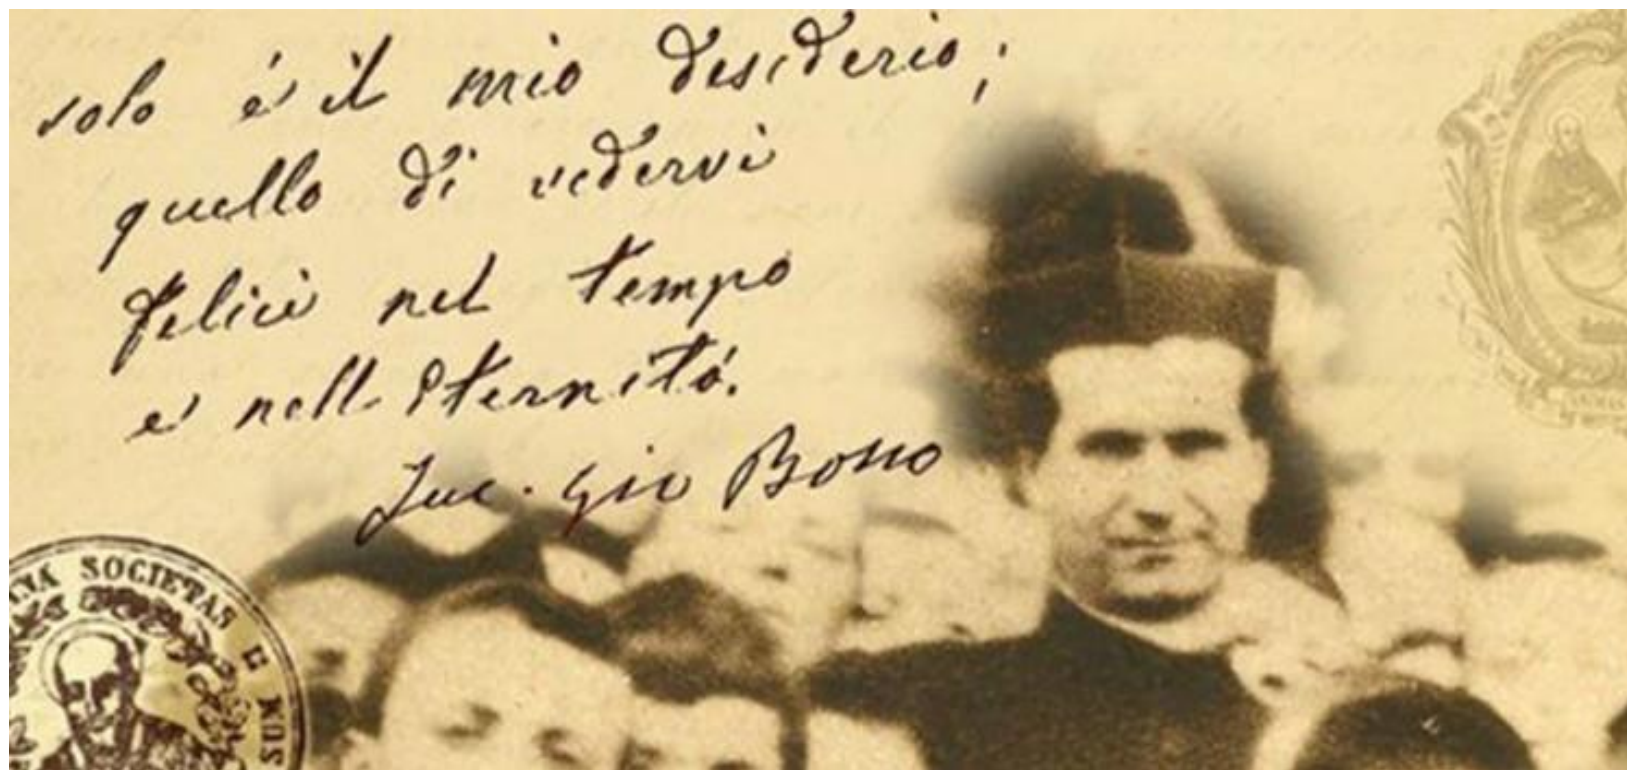 solo é il mio desiderio;
quello di vedervi
felici nel tempo
e nell Eternitá.
Sac. Gio Bosco
SOCIETAS